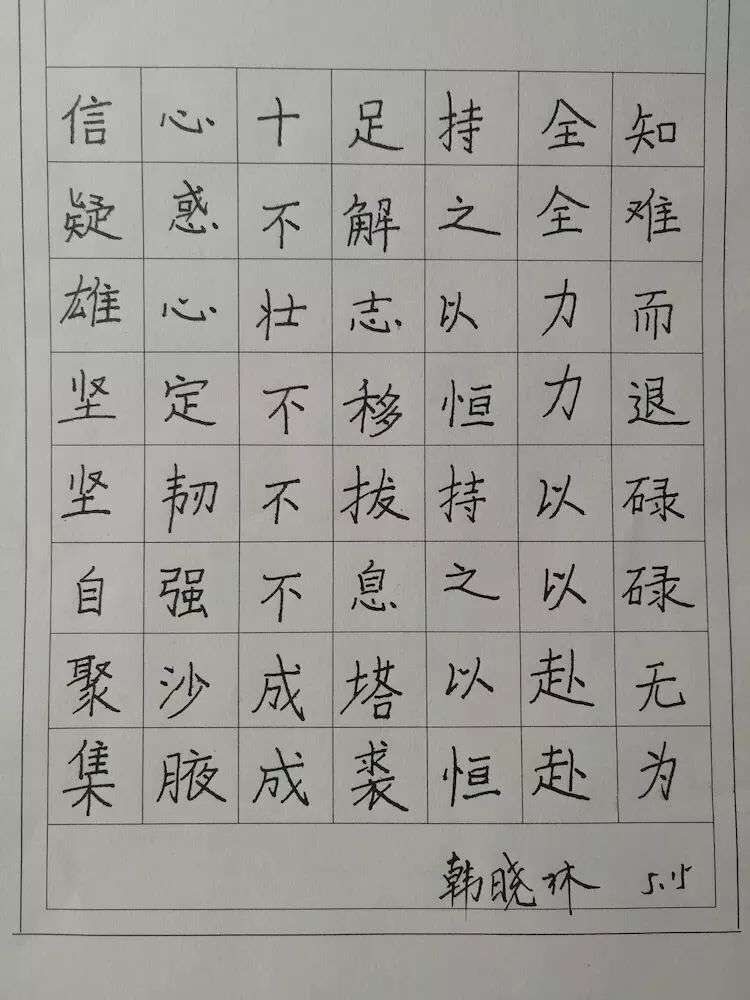 信心十足持全知
疑惑不解之全难
雄心壮志以力而
坚定不移恒力退
坚韧不拔持以碌
自强不息之以碌
聚沙成塔以赴无
集腋成裘恒赴为
韩晓林 5.15